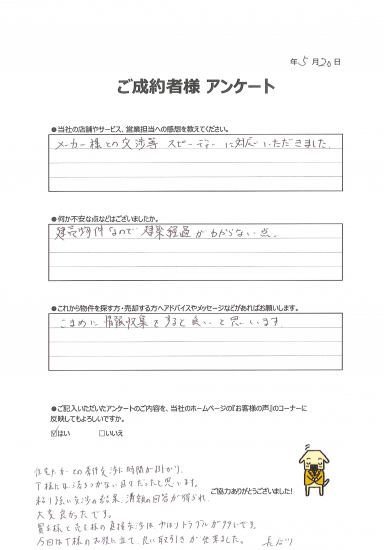 年 5 月 20 日
ご成約者様 アンケート
●当社の店舗やサービス、営業担当への感想を教えてください。
メーカー様との交渉等 スピーディーに対応いただきました.
●何か不安な点などはございましたか。
建売物件なので 建築経過がわからない点.
●これから物件を探す方・売却する方へアドバイスやメッセージなどがあればお願いします。
こまめに情報収集をすると良いと思います.
●ご記入いただいたアンケートのご内容を、当社のホームページの『お客様の声』のコーナーに
反映してもよろしいですか。
☑はい □いいえ
ご協力ありがとうございました!
住宅メーカーとの条件交渉に時間が掛かり、
T様には落ちつかない日々だったと思います。
粘り強い交渉の結果、満額の回答が得られ、
大変良かったです。
買主様と売主様の直接交渉はやはりトラブルが多いです。
今回はT様のお役に立て、良い取引きが出来ました。